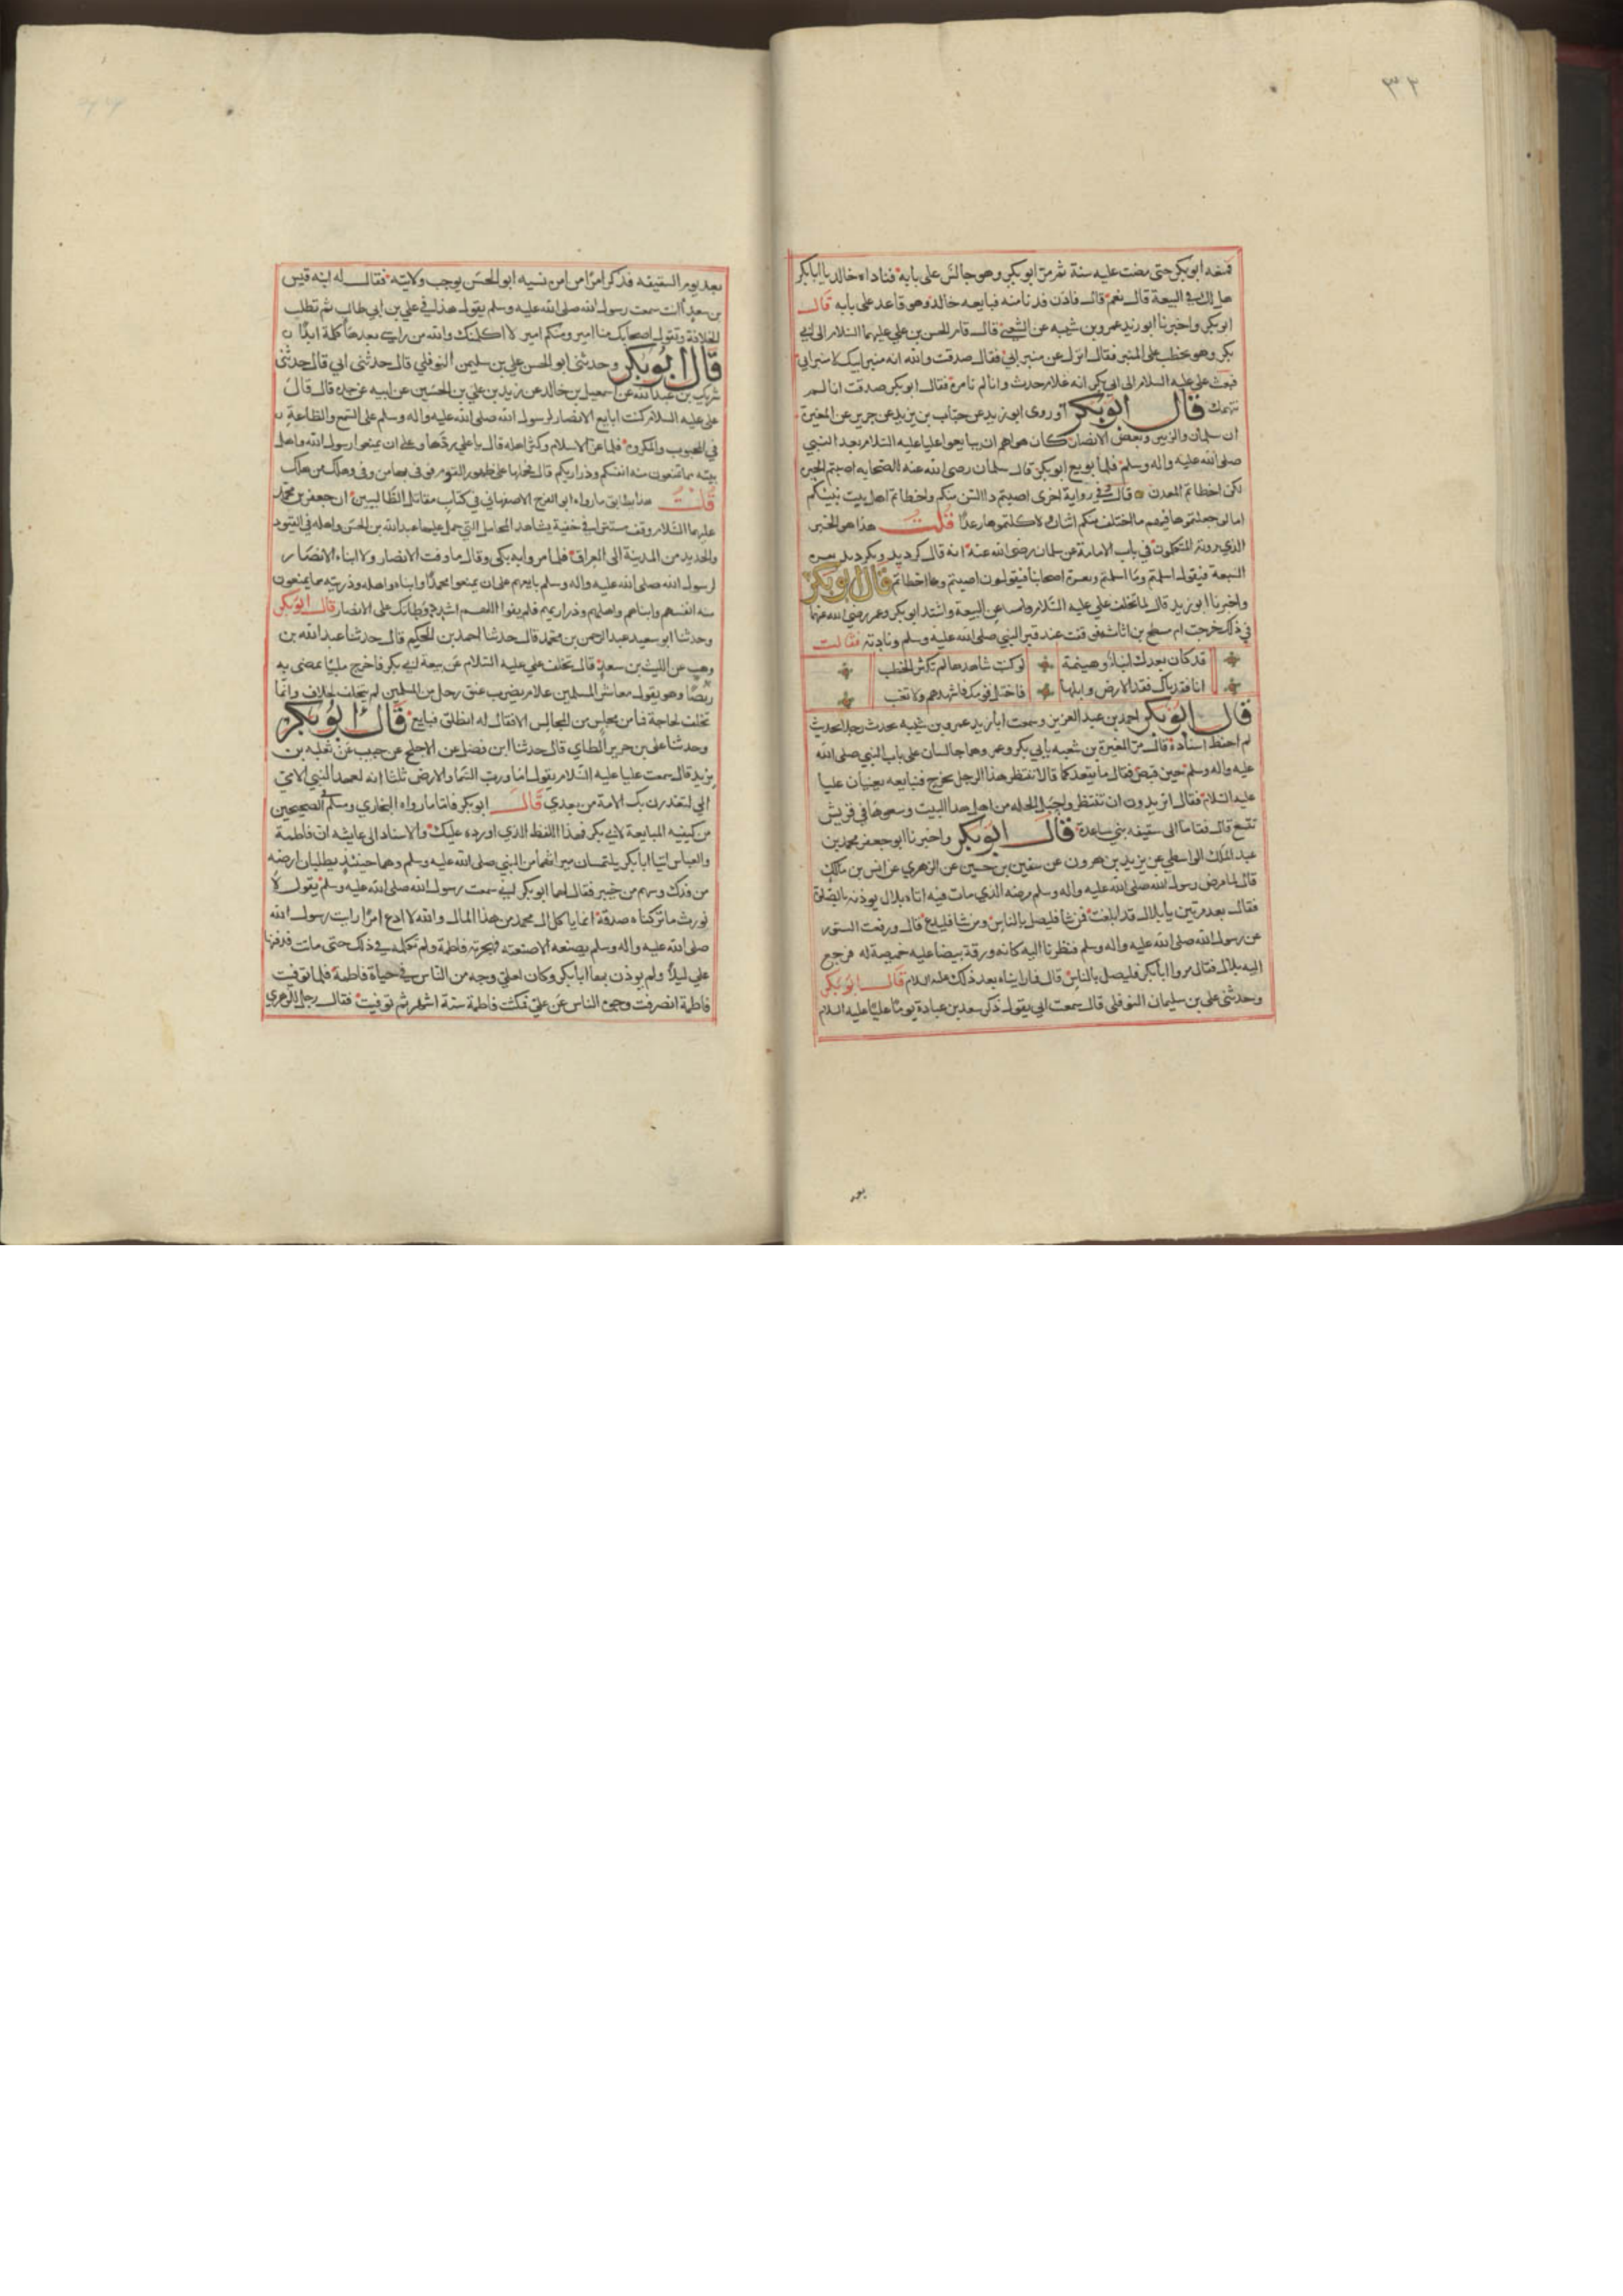 ٣٢
فتركه ابو بكر حتى مضت عليه سنة ثم مر ابو بكر وهو جالس على بابه فناداه خالد يا ابا بكر
هل لك في البيعة قال نعم قال فادن فدنا منه فبايعه خالد وهو قاعد على بابه قال
ابو بكر واخبرنا ابو زيد عمر بن شبه عن الشعبي قال قام الحسن بن علي عليهما السلام الى ابي
بكر وهو يخطب على المنبر فقال انزل عن منبر ابي فقال صدقت والله انه منبر ابيك لا منبر ابي
فبعث علي عليه السلام الى ابي بكر انه غلام حدث وانا لم نامره فقال ابو بكر صدقت انا لم
نتهمك قال ابو بكر وروى ابو زيد عن حباب بن يزيد عن جرير عن المغيرة
ان سلمان والزبير وبعض الانصار كان هواهم ان يبايعوا عليا عليه السلام بعد النبي
صلى الله عليه واله وسلم فلما بويع ابو بكر قال سلمان رضى الله عنه للصحابه اصبتم الخير
لكن اخطاتم المعدن قال وفي رواية اخرى اصبتم ذا السن منكم واخطاتم اهل بيت نبيكم
اما لو جعلتموها فيهم ما اختلف منكم اثنان ولاكلتموها رغدا قلت هذا هو الخبر
الذي روته المتكلمون في باب الامامة عن سلمان رضى الله عنه انه قال كرديد ونكرديد
الشيعة فيقول اسلمتم وما اسلمتم ويفسره اصحابنا فيقولون اصبتم واخطاتم قال ابو بكر
واخبرنا ابو زيد قال لما تخلف علي عليه السلام عن البيعة واشتد ابو بكر وعمر رضى الله عنهما
في ذلك خرجت ام مسطح بن اثاثه فوقفت عند قبر النبي صلى الله عليه وسلم ونادته فقالت
قد كان بعدك انباء وهينمة لو كنت شاهدها لم تكثر الخطب
انا فقدناك فقد الارض وابلها فاختل قومك فاشهدهم ولا تغب
قال ابو بكر احمد بن عبد العزيز وسمعت ابا زيد عمر بن شبه يحدث رجلا بحديث
لم احفظ اسناده قال مر المغيرة بن شعبه بابي بكر وعمر وهما جالسان على باب النبي صلى الله
عليه واله وسلم حين قبض فقال ما يقعدكما قالا ننتظر هذا الرجل يخرج فنبايعه يعنيان عليا
عليه السلام فقال اتريدون ان تنتظروا حبل الحبله من اهل هذا البيت وسعوها في قريش
تتسع قال فقاما الى سقيفه بني ساعدة قال ابو بكر واخبرنا ابو جعفر محمد بن
عبد الملك الواسطي عن يزيد بن هرون عن سفين بن حسين عن الزهري عن انس بن مالك
قال لما مرض رسول الله صلى الله عليه واله وسلم مرضه الذي مات فيه اتاه بلال يوذنه بالصلاة
فقال بعد مرتين يا بلال قد ابلغت فمن شا فليصل بالناس ومن شا فليدع قال ورفعت الستور
عن رسول الله صلى الله عليه واله وسلم فنظرنا اليه كانه ورقة بيضا عليه خميصة له فرجع
اليه بلال فقال مروا ابا بكر فليصل بالناس قال فما رايناه بعد ذلك عليه السلام قال ابو بكر
وحدثني علي بن سليمان النوفلي قال سمعت ابي يقول ذكر سعد بن عبادة يوما عليا عليه السلام
بعد يوم السقيفه فذكر امرا من امره نسيه ابو الحسن يوجب ولايته فقال له ابنه قيس
بن سعد اانت سمعت رسول الله صلى الله عليه وسلم يقول هذا في علي بن ابي طالب ثم تطلب
الخلافة وتقول اصحابك منا امير ومنكم امير لا اكلمنك والله من راسي بعدها كلمة ابدا
قال ابو بكر وحدثني ابو الحسن علي بن سليمن النوفلي قال حدثني ابي قال حدثني
شريك بن عبد الله عن اسمعيل بن خالد عن زيد بن علي بن الحسين عن ابيه عن جده قال قال
علي عليه السلام كنت ابايع الانصار لرسول الله صلى الله عليه واله وسلم على السمع والطاعة
في المحبوب والمكروه فلما عز الاسلام وكثر اهله قال يا علي زد فيها وعلى ان يمنعوا رسول الله واهل
بيته مما تمنعون منه انفسكم وذراريكم قال فحملها على ظهور القوم فوفى بها من وفى وهلك من هلك
قلت هذا يطابق ما رواه ابو الفرج الاصبهاني في كتاب مقاتل الطالبيين ان جعفر بن محمد
عليهما السلام وقف مستترا في خفية يشاهد المحامل التي حمل عليها عبد الله بن الحسن واهله في القيود
والحديد من المدينة الى العراق فلما مروا به بكى وقال ما وفت الانصار ولا ابناء الانصار
لرسول الله صلى الله عليه واله وسلم بايعهم على ان يمنعوا محمدا وابناه واهله وذريته مما يمنعون
منه انفسهم وابناهم واهليهم وذراريهم فلم يفوا اللهم اشدد وطاتك على الانصار قال ابو بكر
وحدثنا ابو سعيد عبد الرحمن بن محمد قال حدثنا احمد بن الحكيم قال حدثنا عبد الله بن
وهب عن الليث بن سعد قال تخلف علي عليه السلام عن بيعة ابي بكر فاخرج ملببا يمضى به
ركضا وهو يقول معاشر المسلمين علام يضرب عنق رجل من المسلمين لم يتخلف لخلاف وانما
تخلف لحاجة فما مر بمجلس من المجالس الا فقال له انطلق فبايع قال ابو بكر
وحدثنا علي بن جرير الطاي قال حدثنا ابن فضل عن الاجلح عن حبيب عن ثعلبه بن
يزيد قال سمعت عليا عليه السلام يقول اما ورب السما والارض ثلثا انه لعهد النبي الامي
الي لتغدرن بك الامة من بعدي قال ابو بكر فاما ما رواه البخاري ومسلم في الصحيحين
من كيفيه المبايعة لابي بكر فهذا اللفظ الذي اورده عليك والاسناد الى عايشه ان فاطمة
والعباس اتيا ابا بكر يلتمسان ميراثهما من النبي صلى الله عليه وسلم وهما حينئذ يطلبان ارضه
من فدك وسهم من خيبر فقال لهما ابو بكر اني سمعت رسول الله صلى الله عليه وسلم يقول لا
نورث ما تركناه صدقة انما ياكل ال محمد من هذا المال والله لا ادع امرا رايت رسول الله
صلى الله عليه واله وسلم يصنعه الا صنعته فهجرته فاطمة ولم تكلمه في ذلك حتى ماتت فدفنها
علي ليلا ولم يوذن بها ابا بكر وكان لعلي وجه من الناس في حياة فاطمة فلما توفيت
فاطمة انصرفت وجوه الناس عن علي فمكثت فاطمة ستة اشهر ثم توفيت فقال رجل للزهري